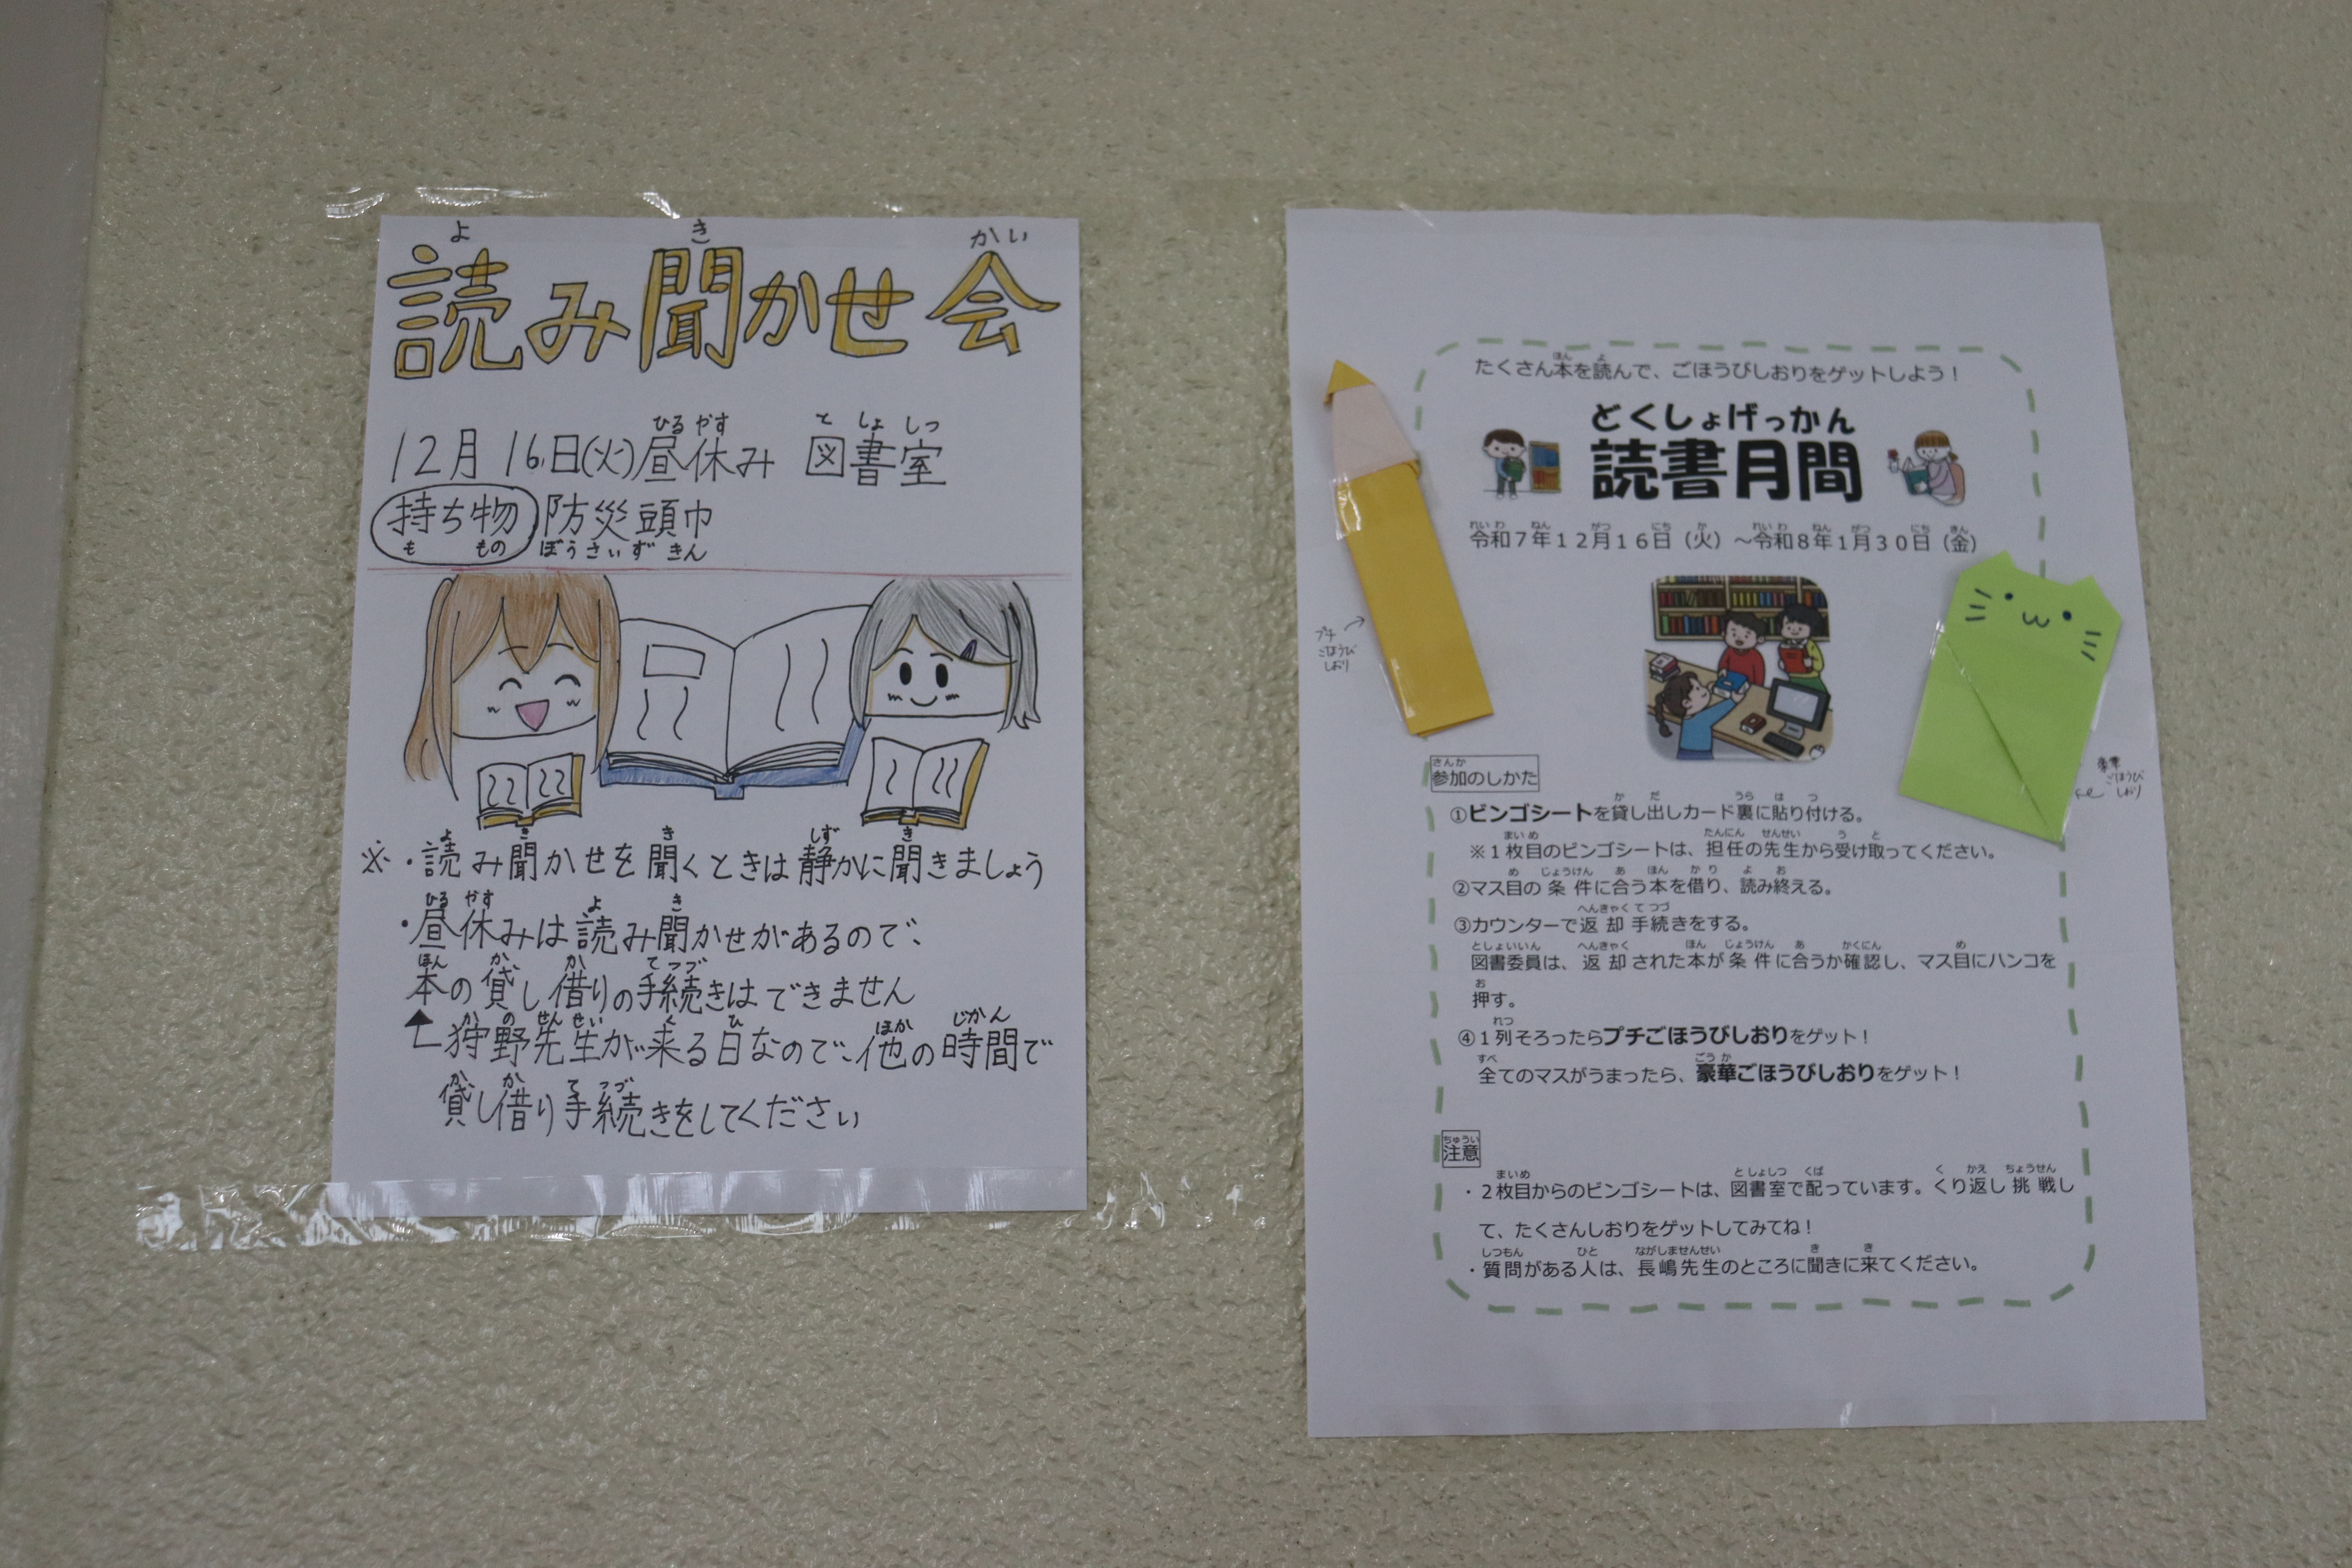 読み聞かせ会
12月16日(火)昼休み 図書室
持ち物 防災頭巾
※・読み聞かせを聞くときは静かに聞きましょう
・昼休みは読み聞かせがあるので、
本の貸し借りの手続きはできません
狩野先生が来る日なので、他の時間で
貸し借り手続きをしてください
たくさん本を読んで、ごほうびしおりをゲットしよう！
どくしょげっかん
読書月間
令和7年12月16日（火）～令和8年1月30日（金）
プチ
ごほうび
しおり
豪華
ごほうび
しおり
参加のしかた
①ビンゴシートを貸し出しカード裏に貼り付ける。
※1枚目のビンゴシートは、担任の先生から受け取ってください。
②マス目の条件に合う本を借り、読み終える。
③カウンターで返却手続きをする。
図書委員は、返却された本が条件に合うか確認し、マス目にハンコを
押す。
④1列そろったらプチごほうびしおりをゲット！
全てのマスがうまったら、豪華ごほうびしおりをゲット！
注意
・2枚目からのビンゴシートは、図書室で配っています。くり返し挑戦し
て、たくさんしおりをゲットしてみてね！
・質問がある人は、長嶋先生のところに聞きに来てください。